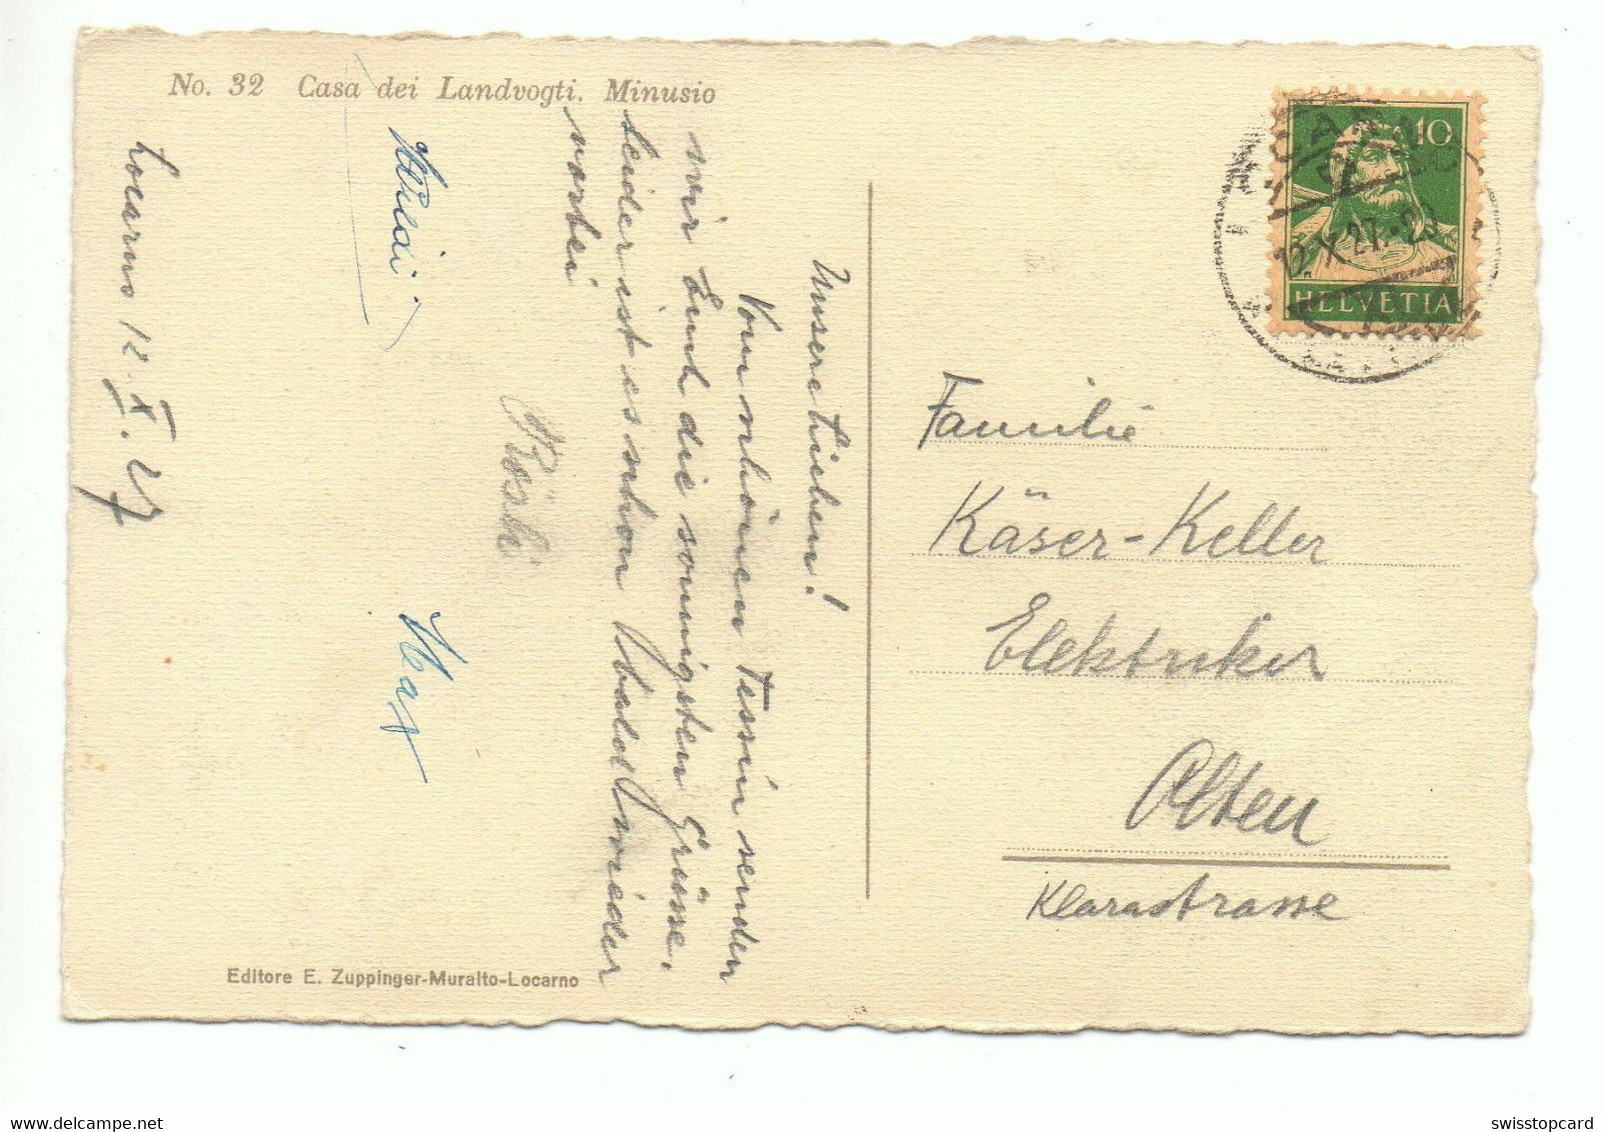 No. 32 Casa dei Landvogti. Minusio
Locarno 12. X. 27
Unsere Lieben!
Vom schönen Tessin senden
wir Euch die sonnigsten Grüsse.
Leider ist es schon bald wieder
vorbei
Rösli
Heidi
Max
LOCARNO
12. X. 27.-20
10
HELVETIA
Familie
Käser-Keller
Elektriker
Olten
Klarastrasse
Editore E. Zuppinger-Muralto-Locarno
swisstopcard